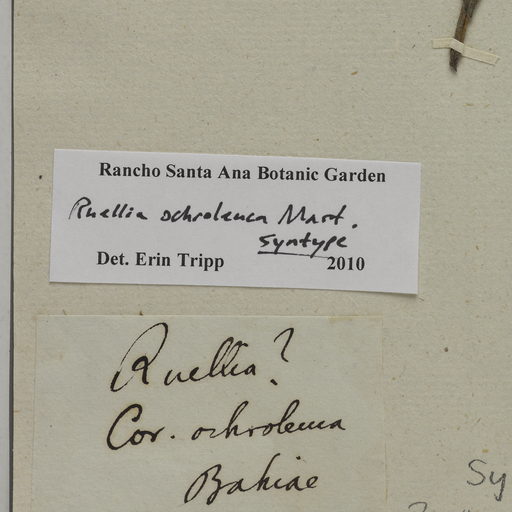 Rancho Santa Ana Botanic Garden
Ruellia ochroleuca Mart.
syntype
Det. Erin Tripp 2010
Ruellia?
Cor. ochroleuca
Bahiae
Sy